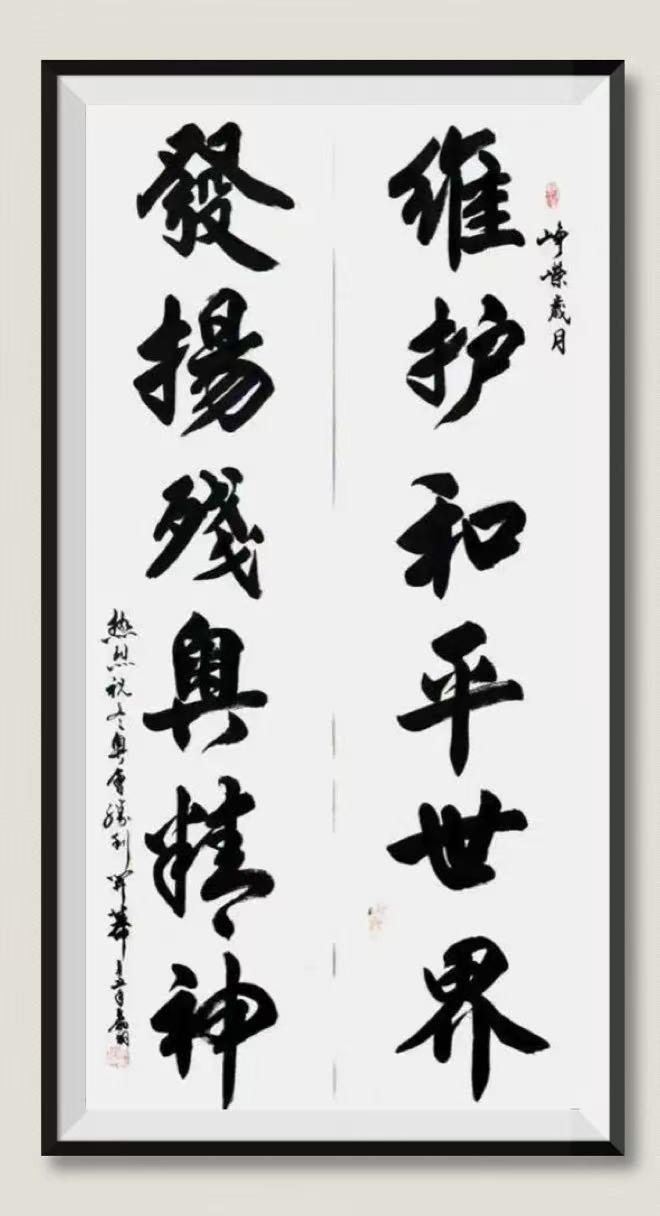 峥嵘歲月
维护和平世界
發揚殘奥精神
热烈祝冬奥會勝利開幕